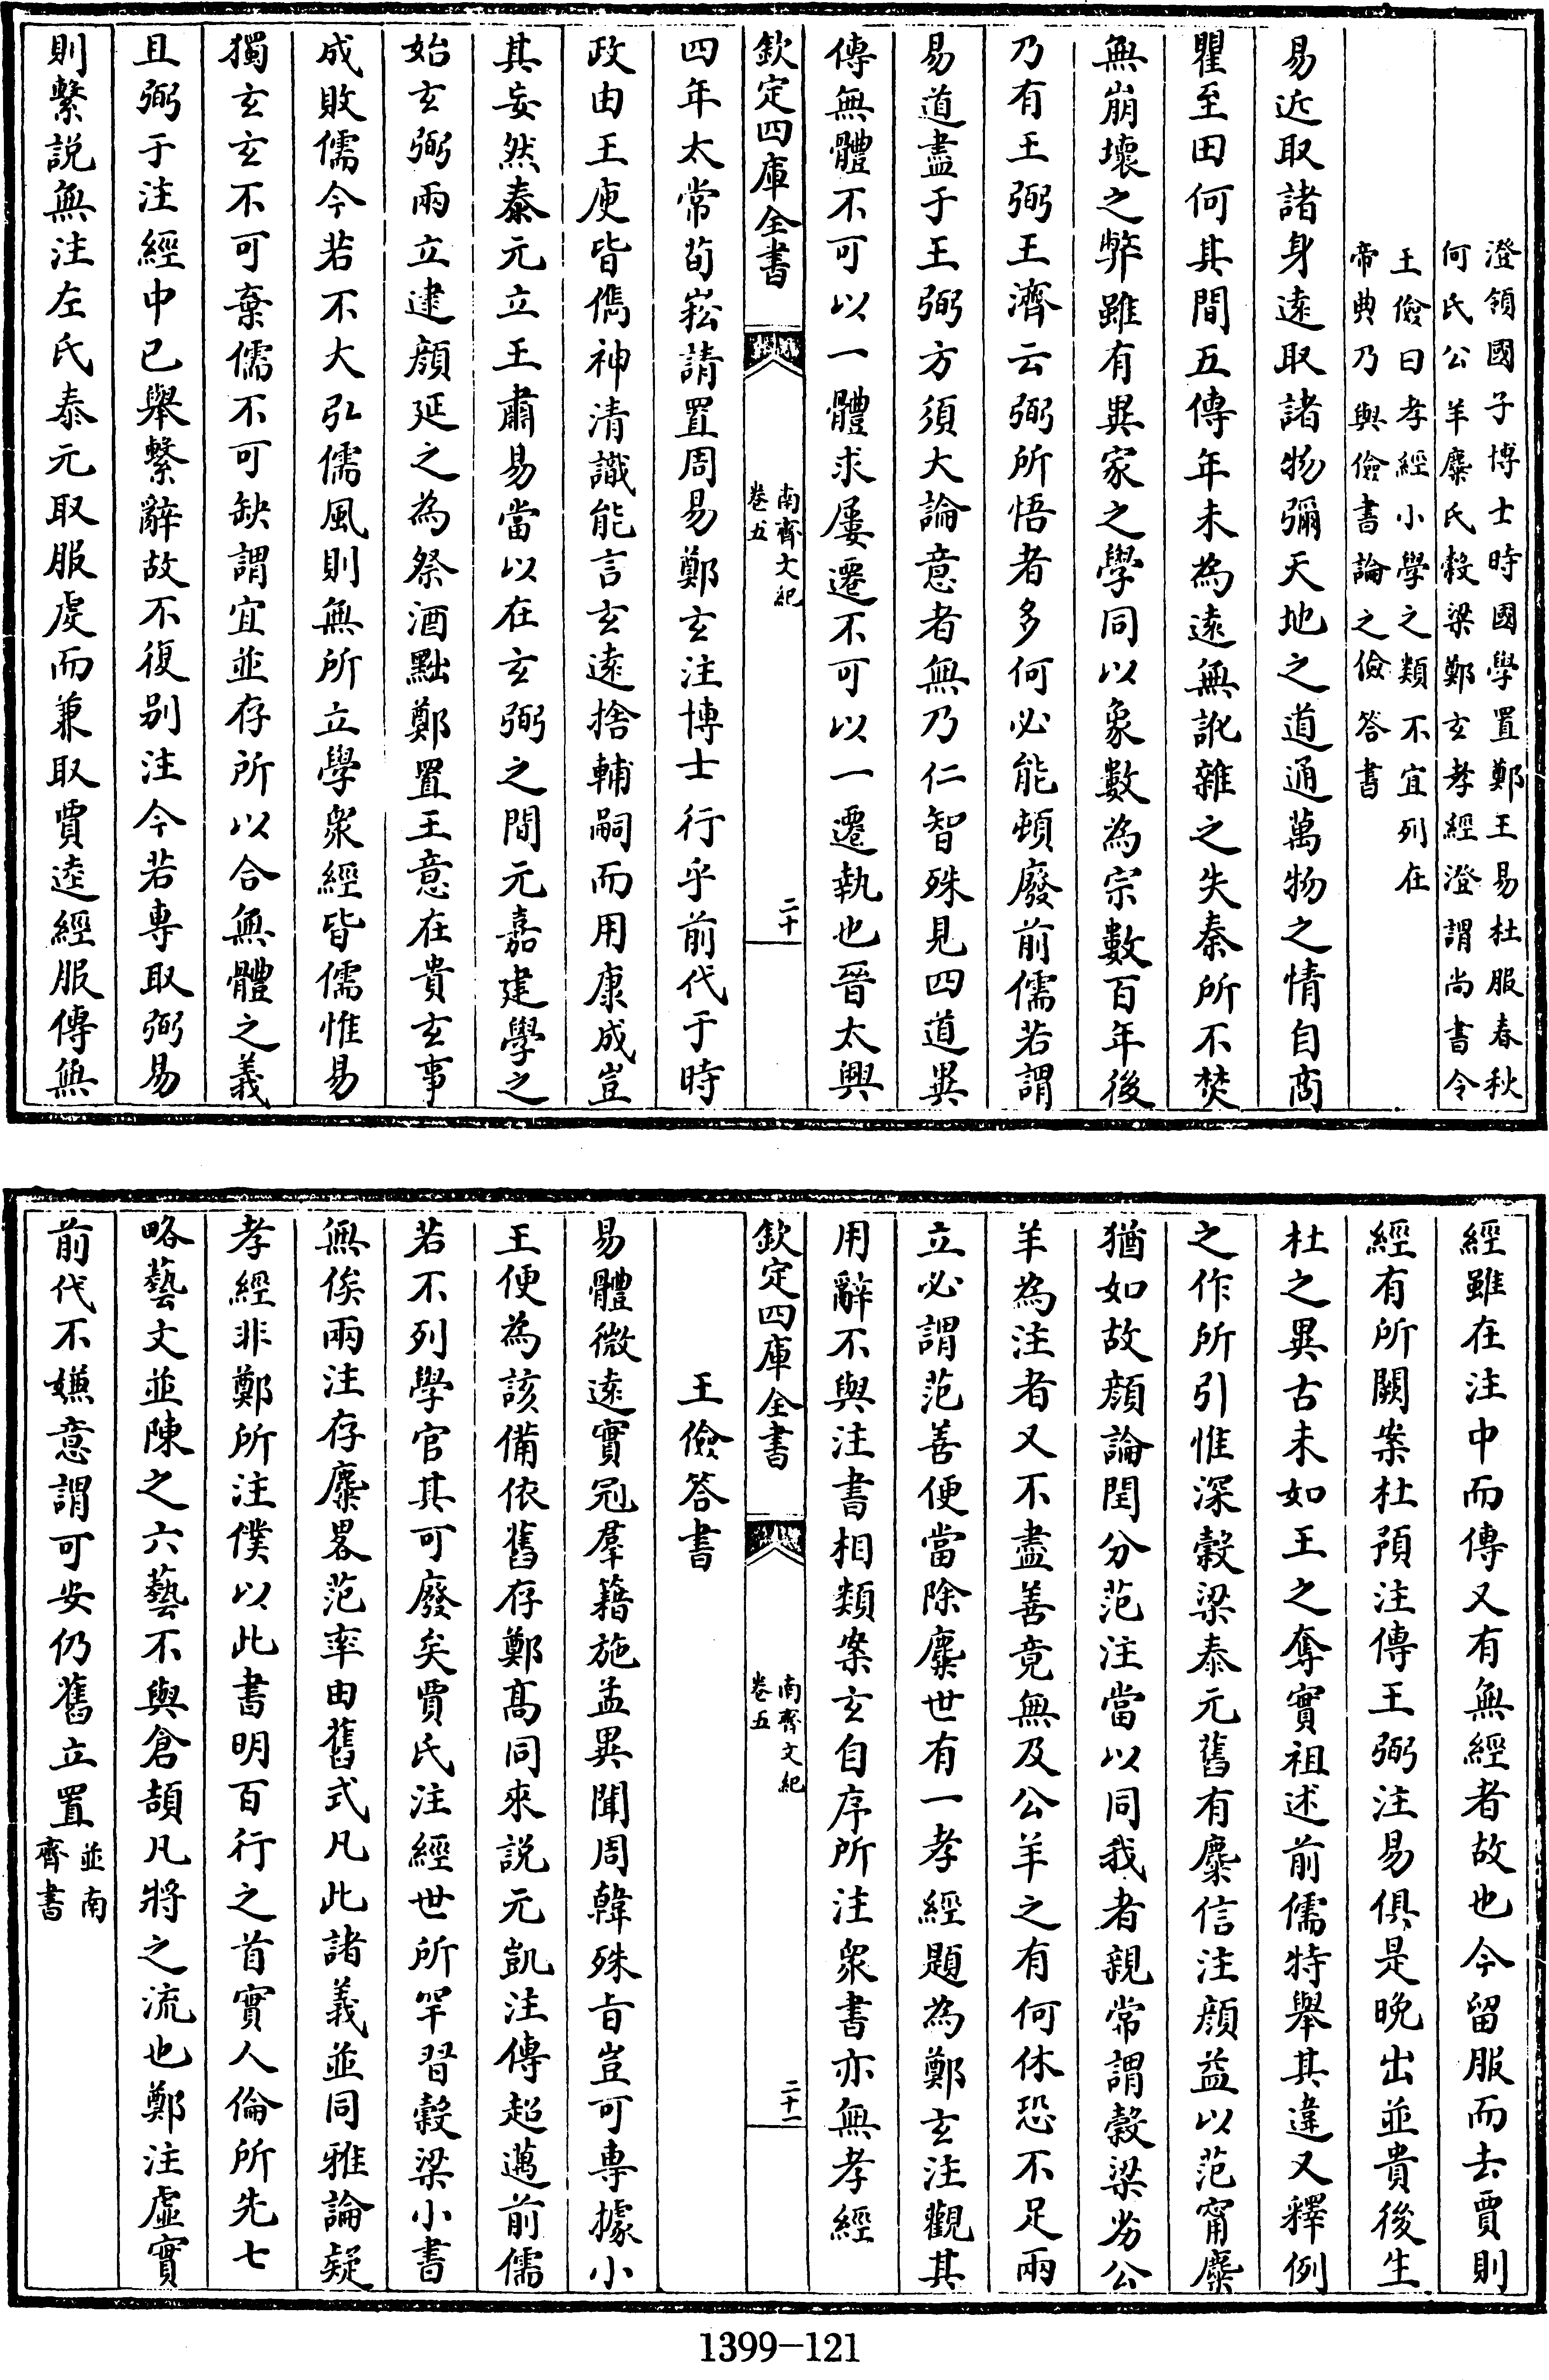 澄領國子博士時國學置鄭王易杜服春秋
何氏公羊麋氏穀梁鄭玄孝經澄謂尚書令
王儉曰孝經小學之類不宜列在
帝典乃與儉書論之儉答書
易近取諸身遠取諸物彌天地之道通萬物之情自商
瞿至田何其間五傳年未為遠無訛雜之失秦所不焚
無崩壞之弊雖有異家之學同以象數為宗數百年後
乃有王弼王濟云弼所悟者多何必能頓廢前儒若謂
易道盡于王弼方須大論意者無乃仁智殊見四道異
傳無體不可以一體求屢遷不可以一遷執也晉太興
欽定四庫全書
南齊文紀
卷五
二十
四年太常荀崧請置周易鄭玄注博士行乎前代于時
政由王庾皆儁神清識能言玄遠捨輔嗣而用康成豈
其妄然泰元立王肅易當以在玄弼之間元嘉建學之
始玄弼兩立逮顔延之為祭酒黜鄭置王意在貴玄事
成敗儒今若不大弘儒風則無所立學衆經皆儒惟易
獨玄玄不可棄儒不可缺謂宜並存所以合無體之義
且弼于注經中已舉繫辭故不復别注今若専取弼易
則繫説無注左氏泰元取服虔而兼取賈逵經服傳無
經雖在注中而傳又有無經者故也今留服而去賈則
經有所闕案杜預注傳王弼注易俱是晩出並貴後生
杜之異古未如王之奪實祖述前儒特舉其違又釋例
之作所引惟深穀梁泰元舊有麋信注顔益以范甯麋
猶如故顔論閏分范注當以同我者親常謂穀梁劣公
羊為注者又不盡善竟無及公羊之有何休恐不足兩
立必謂范善便當除麋世有一孝經題為鄭玄注觀其
用辭不與注書相類案玄自序所注衆書亦無孝經
欽定四庫全書
南齊文紀
卷五
二十一
王儉答書
易體微遠實冠羣籍施孟異聞周韓殊旨豈可専據小
王便為該備依舊存鄭髙同來説元凱注傳超邁前儒
若不列學官其可廢矣賈氏注經世所罕習穀梁小書
無俟兩注存麋畧范率由舊式凡此諸義並同雅論疑
孝經非鄭所注僕以此書明百行之首實人倫所先七
略藝文並陳之六藝不與倉頡凡將之流也鄭注虛實
前代不嫌意謂可安仍舊立置
並南
齊書
1399-121